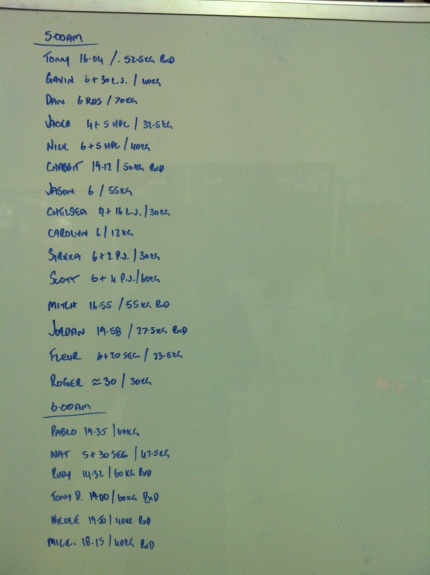 5:00AM
TONY 16.04 /. 52.5KG RxD
GAVIN 6+30 L.J. / 40KG
DAN 6 RDS / 70KG
4+5 HPC / 32.5KG
NICK 6+5 HPC / 40KG
CHABBIT 19.17 / 50KG RxD
JASON 6 / 55KG
CHELSEA 4+16 L.J. / 30KG
CAROLYN 6 / 12KG
6+2 P.J. / 30KG
SCOTT 6+4 P.J. / 60KG
MITCH 16.55 / 55KG RxD
JORDAN 19.58 / 27.5KG RxD
FLEUR 6+20 SEC / 23.5KG
ROGER ≈ 30 / 30KG
6:00AM
PABLO 19.35 / 40KG
NAT 5+30 SEC / 47.5KG
RUDY 14.32 / 60KG RxD
TONY D. 19.00 / 60KG RxD
NICOLE 19.50 / 40KG RxD
18.15 / 40KG RxD